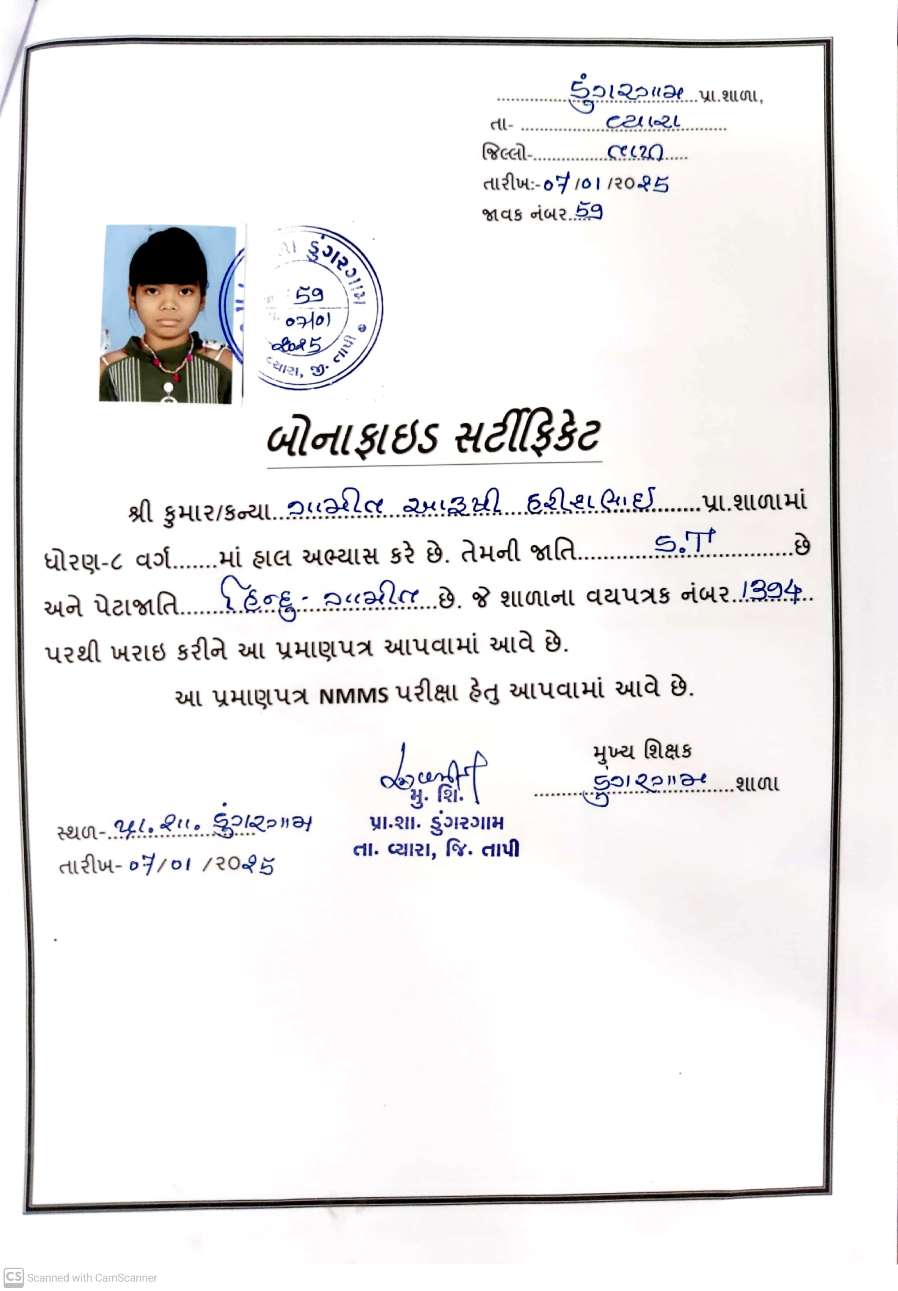 ડુંગરગામ પ્રા.શાળા,
તા- વ્યારા
જિલ્લો- તાપી
તારીખ:- 07/01/૨૦૨5
જાવક નંબર 59
ડુંગરગામ
59
07/01
૨0૨5
વ્યારા, જી. તાપી
બોનાફાઇડ સર્ટીફિકેટ
શ્રી કુમાર/કન્યા ગામીત આરૂષી હરીશભાઈ પ્રા.શાળામાં
ધોરણ-૮ વર્ગ.......માં હાલ અભ્યાસ કરે છે. તેમની જાતિ S.T છે
અને પેટાજાતિ હિન્દુ - ગામીત છે. જે શાળાના વયપત્રક નંબર 1394
પરથી ખરાઇ કરીને આ પ્રમાણપત્ર આપવામાં આવે છે.
આ પ્રમાણપત્ર NMMS પરીક્ષા હેતુ આપવામાં આવે છે.
મુખ્ય શિક્ષક
ડુંગરગામ શાળા
મુ. શિ.
પ્રા.શા. ડુંગરગામ
તા. વ્યારા, જિ. તાપી
સ્થળ- પ્રા. શા. ડુંગરગામ
તારીખ- 07/01 /૨૦૨5
CS Scanned with CamScanner